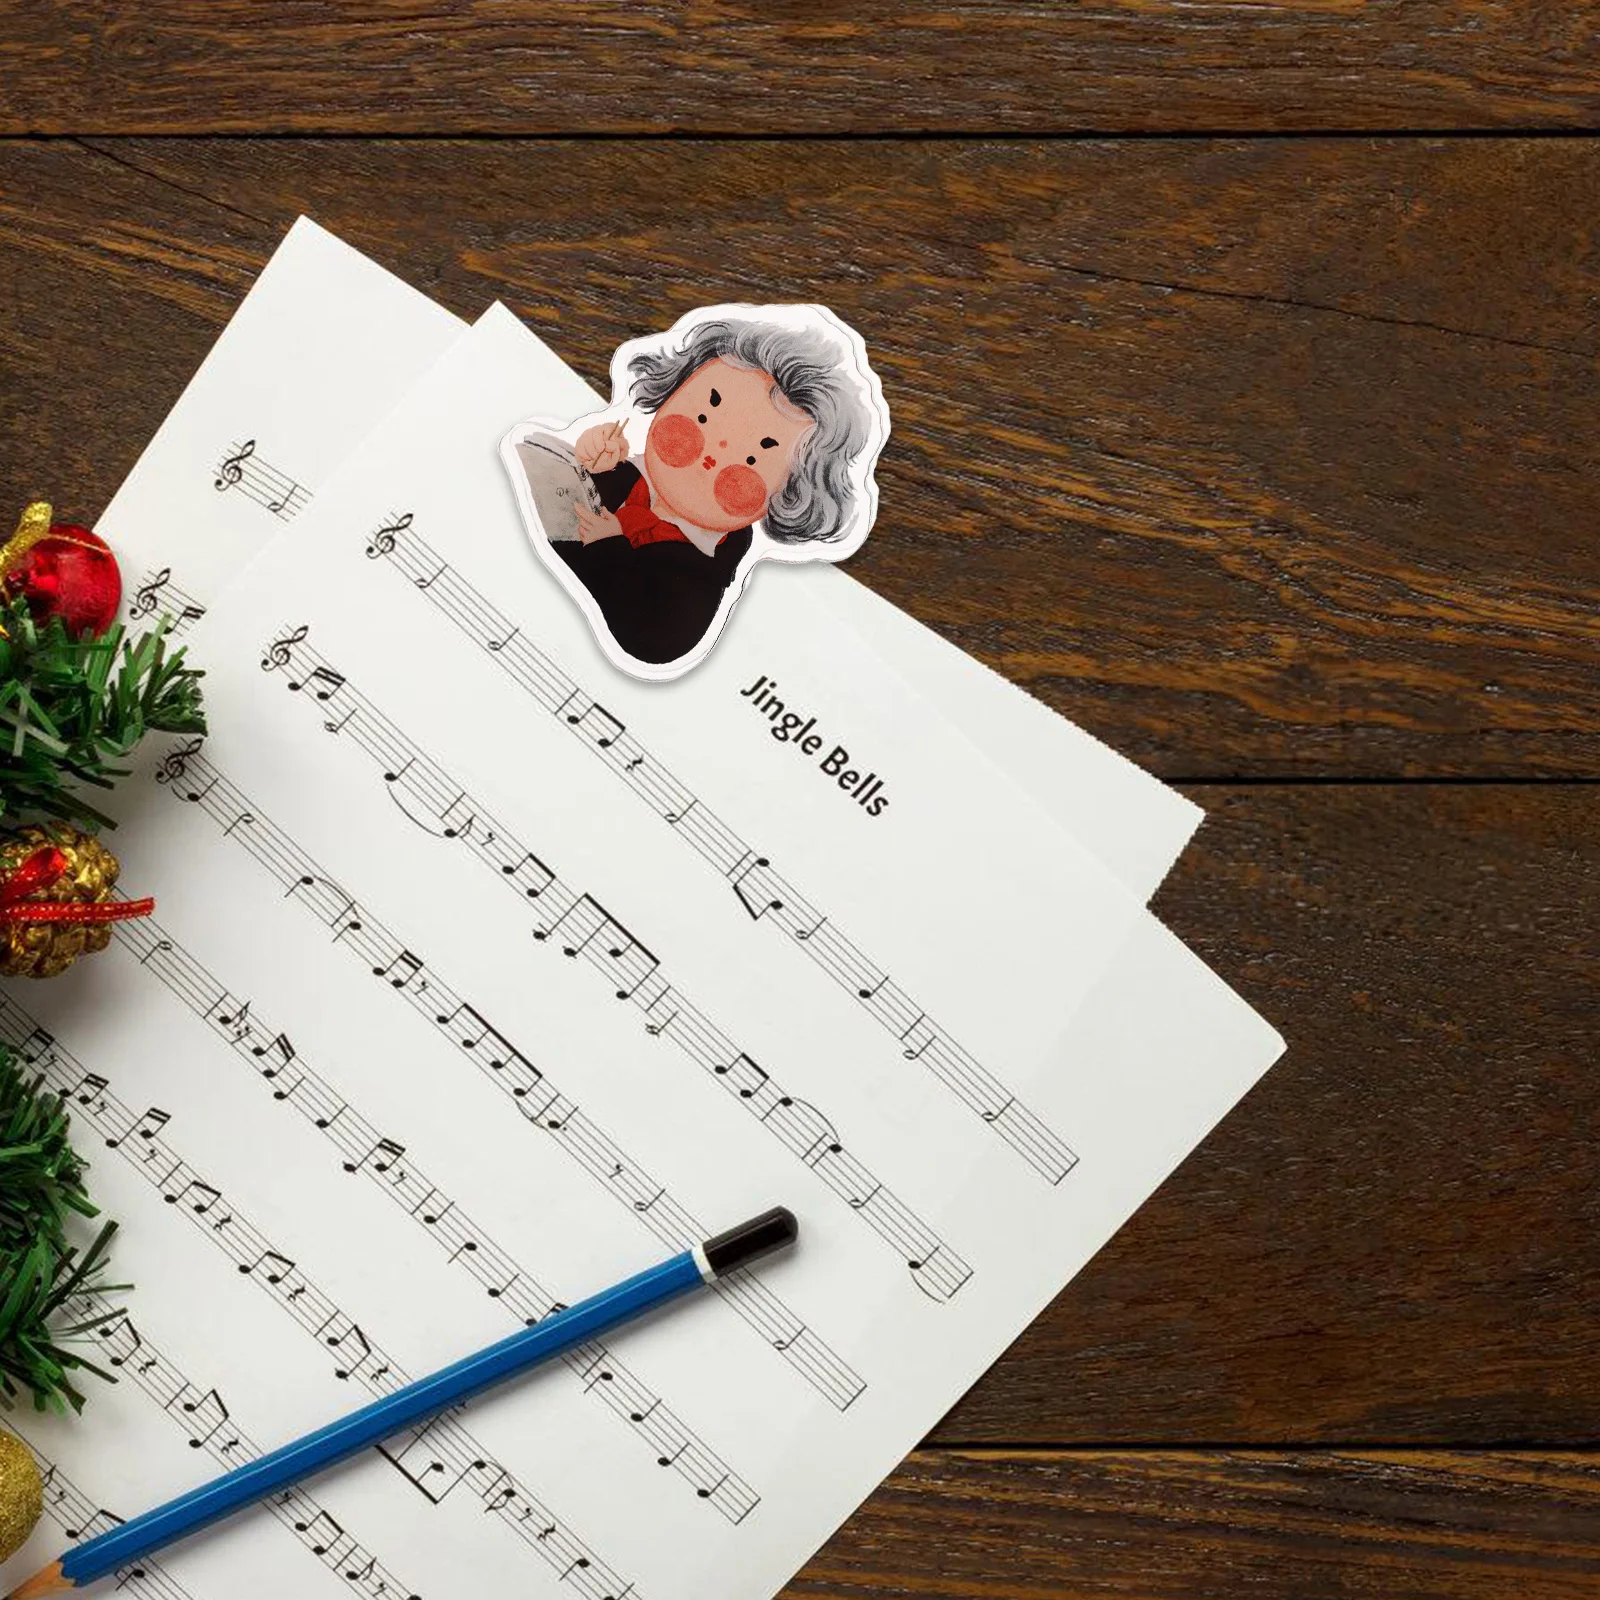 Jingle Bells